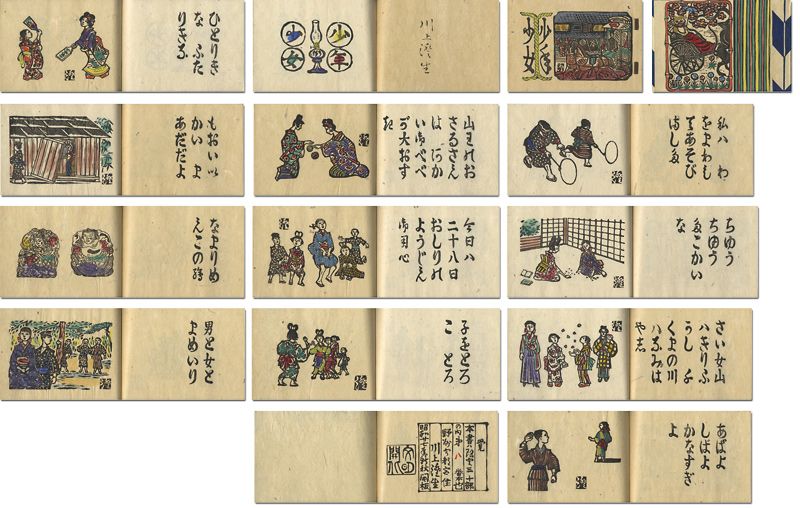 少年
少女
川上澄生
少年
少女
ひとりき
な ふた
りきな
私ハ わ
をまわし
てあそび
ました
山王のお
さるさん
は あか
い御べべ
が大おす
き
もおいい
かい ま
あだだよ
ちゆう
ちゆう
たこかい
な
今日ハ
二十八日
おしりの
ようじん
御用心
さい女山
ハきりふ
かし 千
くまの川
ハなみは
や志
子をとろ
こ とろ
男と女と
まめいり
あばよ
しばよ
かなすぎ
よ
覚
川上澄生